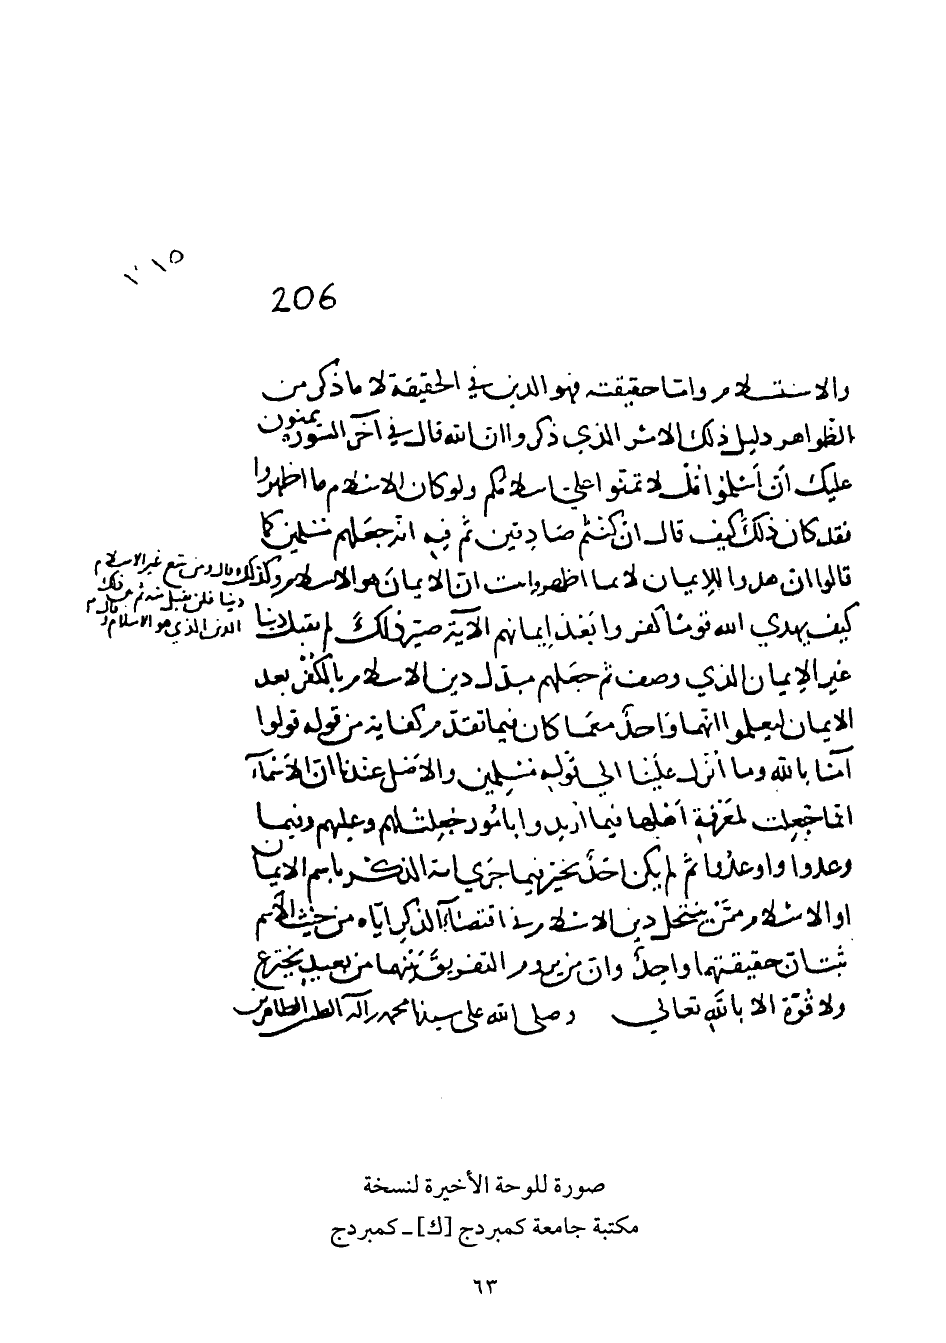 206
والاستسلام واما حقيقته فهو الدين في الحقيقة لا ما ذكر من
الظواهر دليل ذلك الامر الذي ذكروا ان الله قال في آخر السورة يمنون
عليك أن أسلموا قل لا تمنوا علي اسلامكم ولو كان الاسلام ما اظهروا
لقد كان ذلك كيف قال ان كنتم صادقين ثم فيه انه جعلهم مسلمين كما
قالوا ان هدوا للإيمان لا بما اظهروا ثبت ان الايمان هو الاسلام وكذلك
كيف يهدي الله قوما كفروا بعد إيمانهم الآية صير ذلك لم يقبل دينا
غير الإيمان الذي وصف ثم جعلهم مبدل دين الاسلام بالكفر بعد
الايمان ليعلموا انهما واحد معما كان فيما تقدم كفاية من قوله قولوا
آمنا بالله وما أنزل علينا الى قوله مسلمين والأصل عندنا ان الأسماء
انما جعلت لمعرفة أهلها فيما أريدوا بأمور جعلت لهم وعليهم وفيما
وعدوا واوعدوا ثم لم يكن أحد يخبر فيما جرى به الذكر باسم الايمان
او الاسلام ممن ينتحل دين الاسلام في اقتضاء الذكر اياه من حيث الأسم
ثبت ان حقيقتهما واحد وان من يروم التفريق بينهما من بعيد يخترع
ولا قوة الا بالله تعالى وصلى الله على سيدنا محمد وآله الطيبين الطاهرين
وقال ومن يبتغ غير الاسلام
دينا فلن يقبل منه ثم
الدين الذي هو الاسلام
صورة للوحة الأخيرة لنسخة
مكتبة جامعة كمبردج [ك] ـ كمبردج
٦٣